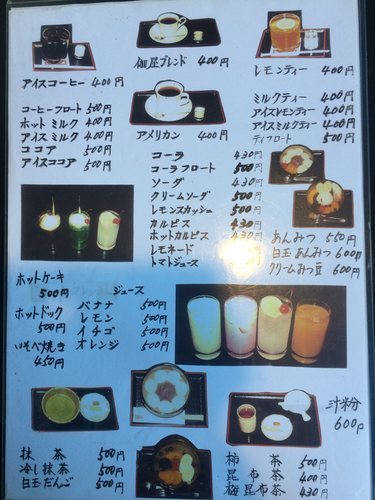 アイスコーヒー 400円
伽屋ブレンド 400円
レモンティー 400円
コーヒーフロート 500円
ホットミルク 400円
アイスミルク 400円
ココア 500円
アイスココア 500円
アメリカン 400円
ミルクティー 400円
アイスレモンティー 400円
アイスミルクティー 400円
ティフロート 500円
コーラ 430円
コーラフロート 500円
ソーダ 430円
クリームソーダ 500円
レモンスカッシュ 500円
カルピス 430円
ホットカルピス 430円
レモネード 500円
トマトジュース 500円
あんみつ 550円
白玉あんみつ 600円
クリームみつ豆 600円
ホットケーキ
500円
ホットドック
500円
いそべ焼き
450円
ジュース
バナナ 500円
レモン 500円
イチゴ 500円
オレンジ 500円
汁粉
600円
抹茶 500円
冷し抹茶 500円
白玉だんご 500円
柿茶 500円
昆布茶 400円
梅昆布茶 430円